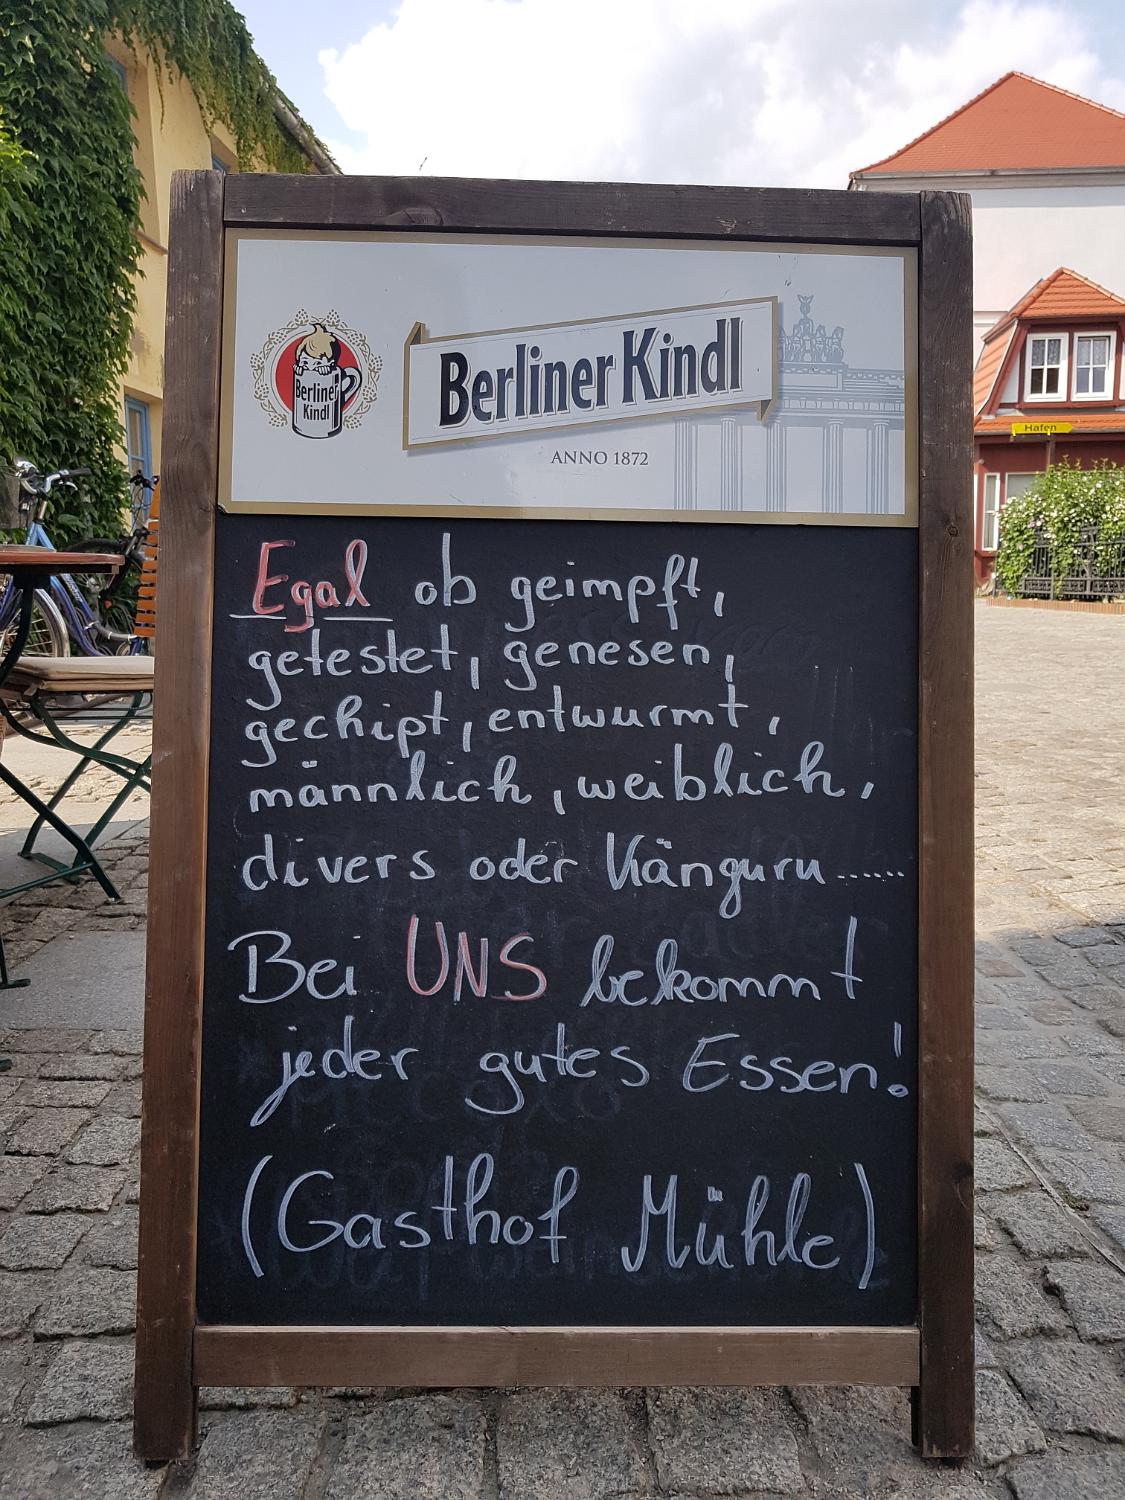 Berliner Kindl
Berliner
Kindl
ANNO 1872
Hafen
Egal ob geimpft,
getestet, genesen,
gechipt, entwurmt,
männlich, weiblich,
divers oder Känguru......
Bei UNS bekommt
jeder gutes Essen!
(Gasthof Mühle)